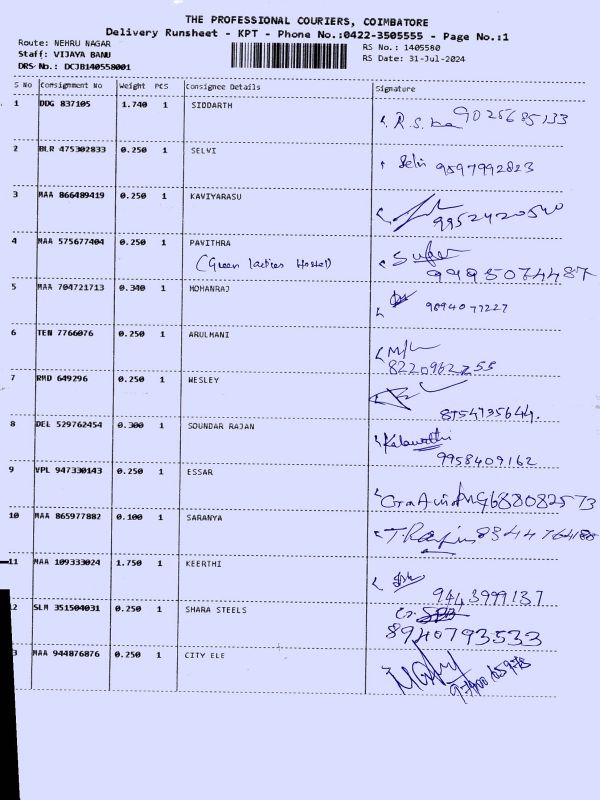 THE PROFESSIONAL COURIERS, COIMBATORE
Delivery Runsheet - KPT - Phone No.:0422-3505555 - Page No.:1
Route: NEHRU NAGAR RS No.: 1405580
Staff: VIJAYA BANU RS Date: 31-Jul-2024
DRS No.: DCJB140558001
S No Consignment No Weight PCS Consignee Details Signature
1 DDG 837105 1.740 1 SIDDARTH
9025685133
2 BLR 475302833 0.250 1 SELVI
Selvi 9597992823
3 MAA 866489419 0.250 1 KAVIYARASU
9952420540
4 MAA 575677404 0.250 1 PAVITHRA
(Green ladies Hostel)
5 MAA 704721713 0.340 1 MOHANRAJ
9894077227
6 TEN 7766076 0.250 1 ARULMANI
8220962255
7 RMD 649296 0.250 1 WESLEY
8754735644.
8 DEL 529762454 0.300 1 SOUNDAR RAJAN
Kalavathi
9958409162
9 VPL 947330143 0.250 1 ESSAR
10 MAA 865977882 0.100 1 SARANYA
11 MAA 109333024 1.750 1 KEERTHI
9443999137
12 SLM 351504031 0.250 1 SHARA STEELS
8940793533
MAA 944876876 0.250 1 CITY ELE